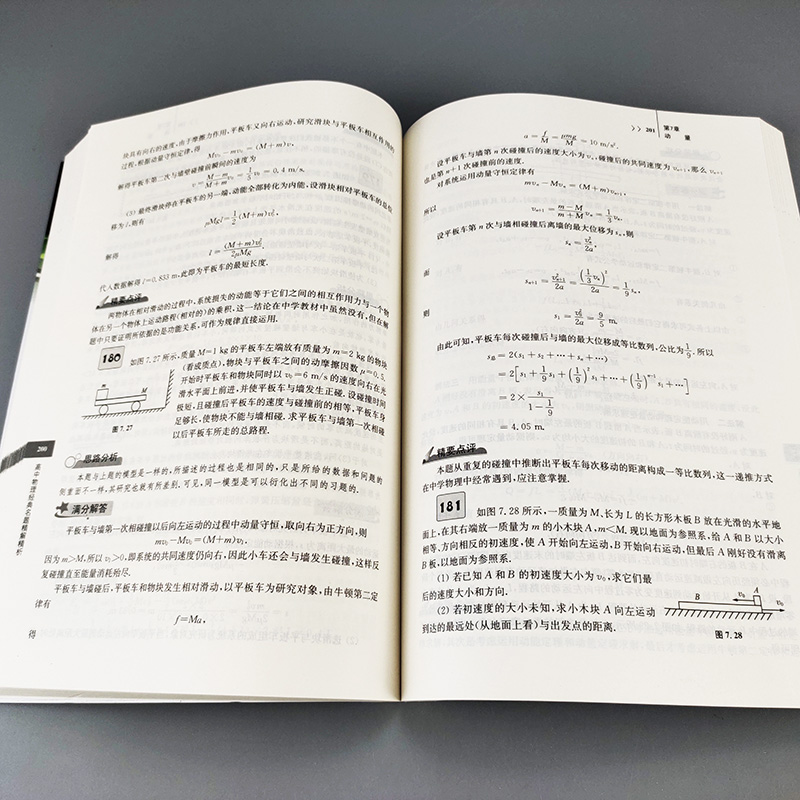 块具有向右的速度,由于摩擦力作用,平板车又向右运动,研究滑块与平板车相互作用的
过程,根据动量守恒定律,得
Mv₀－mv₀=(M+m)v,
解得平板车第二次与墙壁碰撞前瞬间的速度为
v=\frac{M-m}{M+m}v₀=\frac{1}{5}v₀=0.4 m/s.
(3) 最终滑块停在平板车的另一端,动能全部转化为内能,设滑块相对平板车的总位
移为 l,则有
μMgl=\frac{1}{2}(M+m)v₀²,
解得
l=\frac{(M+m)v₀²}{2μMg}
代入数据解得 l=0.833 m,此即为平板车的最短长度.
精要点评
两物体在相对滑动的过程中,系统损失的动能等于它们之间的相互作用力与一个物
体在另一个物体上运动路程(相对的)的乘积,这一结论在中学教材中虽然没有,但在解
题中只要证明所依据的是功能关系,可作为规律直接运用.
180 如图 7.27 所示,质量 M=1 kg 的平板车左端放有质量为 m=2 kg 的物块
(看成质点),物块与平板车之间的动摩擦因数 μ=0.5.
开始时平板车和物块同时以 v₀=6 m/s 的速度向右在光
滑水平面上前进,并使平板车与墙发生正碰.设碰撞时间
极短,且碰撞后平板车的速度与碰撞前的相等,平板车身
足够长,使物块不能与墙相碰.求平板车与墙第一次相碰
以后平板车所走的总路程.
m
M
图 7.27
200
高中物理经典名题精解精析
思路分析
本题与上题的模型是一样的,所描述的过程也是相同的,只是所给的数据和问题的
侧重面不一样,其研究也就有所差别.可见,同一模型是可以衍化出不同的习题的.
满分解答
平板车与墙第一次相碰撞以后向左运动的过程中动量守恒,取向右为正方向,则
mv₀－Mv₀=(M+m)v₁.
因为 m>M,所以 v₁>0,即系统的共同速度仍向右,因此小车还会与墙发生碰撞,这样反
复碰撞直至能量消耗殆尽.
平板车与墙碰后,平板车和物块发生相对滑动,以平板车为研究对象,由牛顿第二定
律有
f=Ma,
得
>> 201 第7章
动 量
a=\frac{f}{M}=\frac{μmg}{M}=10 m/s².
设平板车与墙第 n 次碰撞后的速度大小为 vₙ,碰撞后的共同速度为 vₙ₊₁,那么 vₙ₊₁
也是第 n+1 次碰撞前的速度.
对系统运用动量守恒定律有
mvₙ－Mvₙ=(M+m)vₙ₊₁,
所以
vₙ₊₁=\frac{m-M}{m+M}vₙ=\frac{1}{3}vₙ.
设平板车第 n 次与墙相碰撞后离墙的最大位移为 sₙ,则
sₙ=\frac{vₙ²}{2a},
而
sₙ₊₁=\frac{vₙ₊₁²}{2a}=\frac{(\frac{1}{3}vₙ)²}{2a}=\frac{1}{9}sₙ,
则
s₁=\frac{v₀²}{2a}=\frac{9}{5} m.
由此可知,平板车每次碰撞后与墙的最大位移成等比数列,公比为\frac{1}{9}.所以
s总=2(s₁+s₂+⋯+sₙ+⋯)
=2[s₁+\frac{1}{9}s₁+(\frac{1}{9})²s₁+⋯+(\frac{1}{9})ⁿ⁻¹s₁+⋯]
=2×\frac{s₁}{1-\frac{1}{9}}
=4.05 m.
精要点评
本题从重复的碰撞中推断出平板车每次移动的距离构成一等比数列,这一递推方式
在中学物理中经常遇到,应注意掌握.
181 如图 7.28 所示,一质量为 M、长为 L 的长方形木板 B 放在光滑的水平地
面上,在其右端放一质量为 m 的小木块 A,m<M.现以地面为参照系,给 A 和 B 以大小
相等、方向相反的初速度,使 A 开始向左运动,B 开始向右运动,但最后 A 刚好没有滑离
B 板,以地面为参照系.
(1) 若已知 A 和 B 的初速度大小为 v₀,求它们最
后的速度大小和方向.
(2) 若初速度的大小未知,求小木块 A 向左运动
到达的最远处(从地面上看)与出发点的距离.
v₀
A
B
v₀
图 7.28